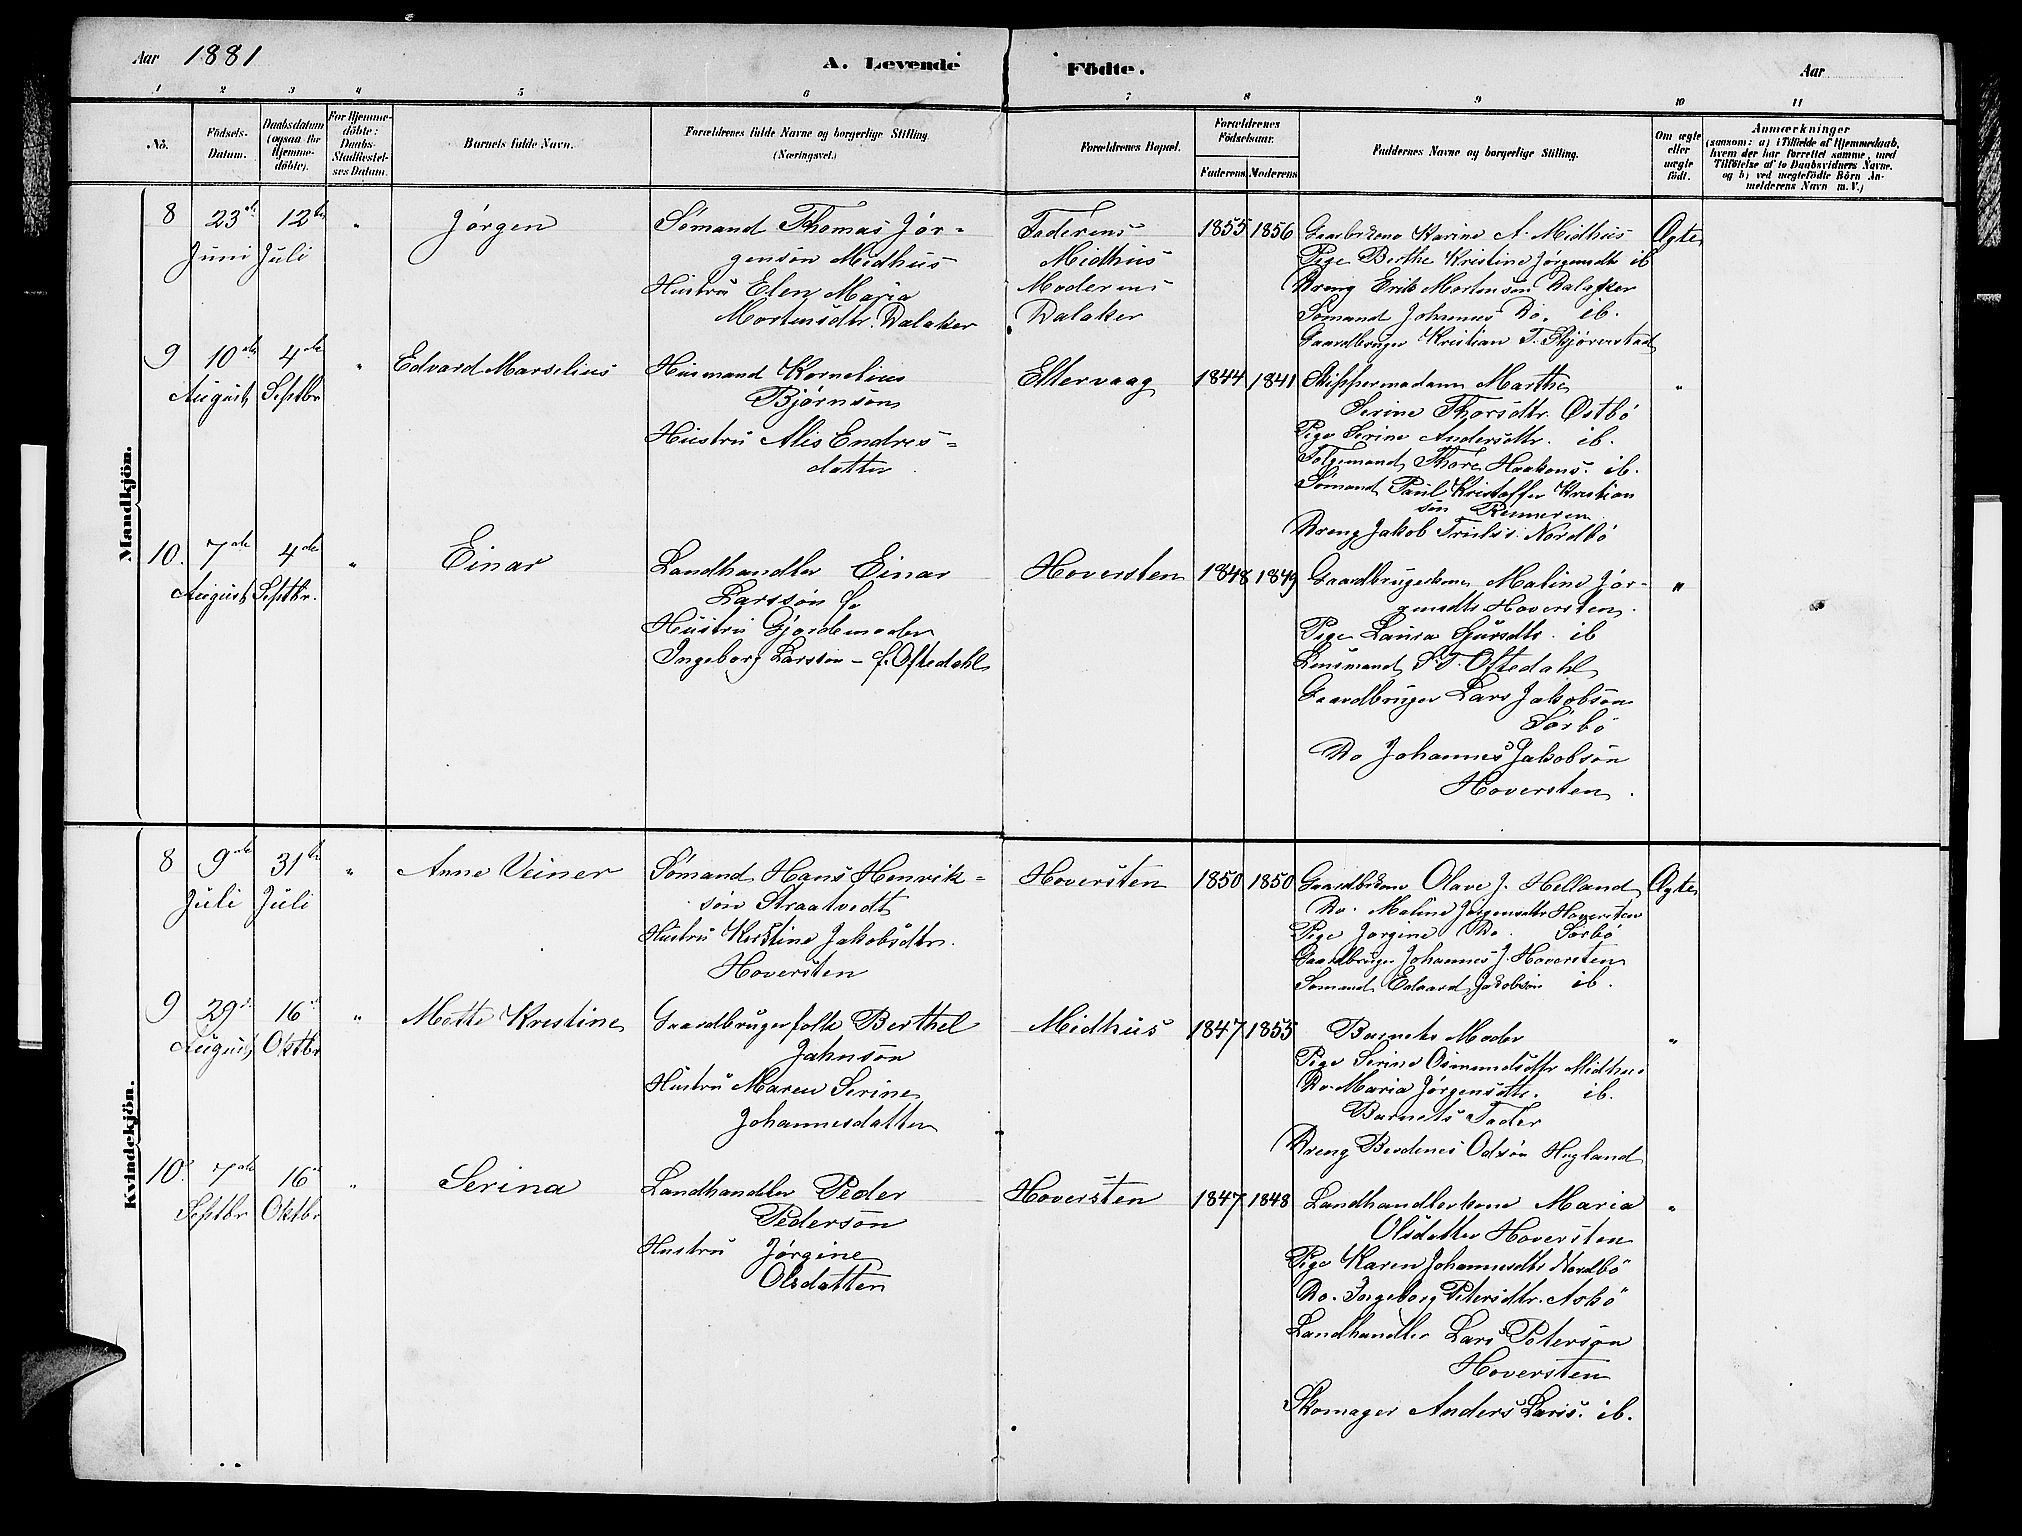 Aar 1881
A. Levende Födte.
Aar
1 2 3 4 5 6 7 8 9 10 11
No.
Födsels-
Datum.
Daabsdatum
(ogsaa for
Hjemme-
döbte).
For Hjemme-
döbte:
Daabs-
Stadfæstel-
ses Datum.
Barnets fulde Navn.
Forældrenes fulde Navne og borgerlige Stilling.
(Næringsvei.)
Forældrenes Bopæl.
Forældrenes
Födselsaar.
Faderens Moderens
Faddernes Navne og borgerlige Stilling.
Om ægte
eller
uægte
födt.
Anmærkninger
(saasom: a) i Tilfælde af Hjemmedaab,
hvem der har forrettet samme, med
Tilföielse af to Daabsvidners Navne,
og b) ved uægtefödte Börn An-
melderens Navn m. V.)
Mandkjön.
8 23de Juni 12te Juli " Jørgen
Sømand Thomas Jør-
gensøn Midhus
Hustru Elen Maria
Mortensdtr. Dalaker
Faderens
Midhus
Moderens
Dalaker
1855 1856
Gaardbrkone Karine A. Midhus
Pige Berthe Kristine Jørgensdtr ib
Dreng Erik Mortensøn Dalaker
Sømand Johannes Do. ib.
Gaardbruger Kristian T.
Ægte
9 10de August 4de Septbr " Edvard Marselius
Husmand Kornelius
Bjørnsøn
Hustru Alis Endres-
datter
Eltervaag
1844 1841
Skippermadam Marthe
Serine Thorsdtr. Østbø
Pige Serine Andersdtr. ib.
Thore Haakons. ib.
Sømand Paul Kristoffer Kristian
søn Renneren
Dreng Jakob Truls. Nordbø
"
10. 7de August 4de Septbr. " Einar
Landhandler Einar
Larssøn &
Hustru Gjordemoder
Ingeborg Larssøn - f. Oftedahl
Hoversten
1848 1849
Gaardbrugerkone Maline Jør-
gensdtr Hoversten.
Pige Laura Sjursdtr. ib
Lensmand S. T. Oftedahl
Gaardbruger Lars Jakobsøn
Sørbø
Do Johannes Jakobsøn
Hoversten.
"
Kvindekjön.
8 9de Juli 31te Juli " Anne Veiner
Sømand Hans Henrik-
søn Straatvedt
Hustru Kirstine Jakobsdtr.
Hoversten
Hoversten
1850 1850
Gaardbrkone Olave J. Helland
Do. Maline Jørgensdtr Hoversten
Pige Jørgine Do. Sørbø
Gaardbruger Johannes J. Hoversten
Sømand Edvard Jakobsøn ib.
Ægte
9 29de August 16de Oktbr " Mette Kristine
Gaardbrugerfolk Berthel
Jahnsøn
Hustru Maren Serine
Johannesdatter
Midhus
1847 1855
Barnets Moder
Pige Serine Osmundsdtr Midhus
Do. Maria Jørgensdtr. ib.
Barnets Fader
Dreng Odsøn Hegland
"
10. 7de Septbr 16de Oktbr " Serina
Landhandler Peder
Pedersøn
Hustru Jørgine
Olsdatter
Hoversten
1847 1848
Landhandlerkone Maria
Olsdatter Hoversten
Pige Karen Johannesdtr Nordbø
Do. Ingeborg Petersdtr. Askø
Landhandler Lars Petersøn
Hoversten
Skomager Anders Lars. ib.
"